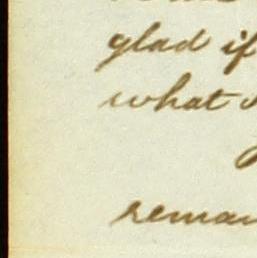 glad if
what
remar